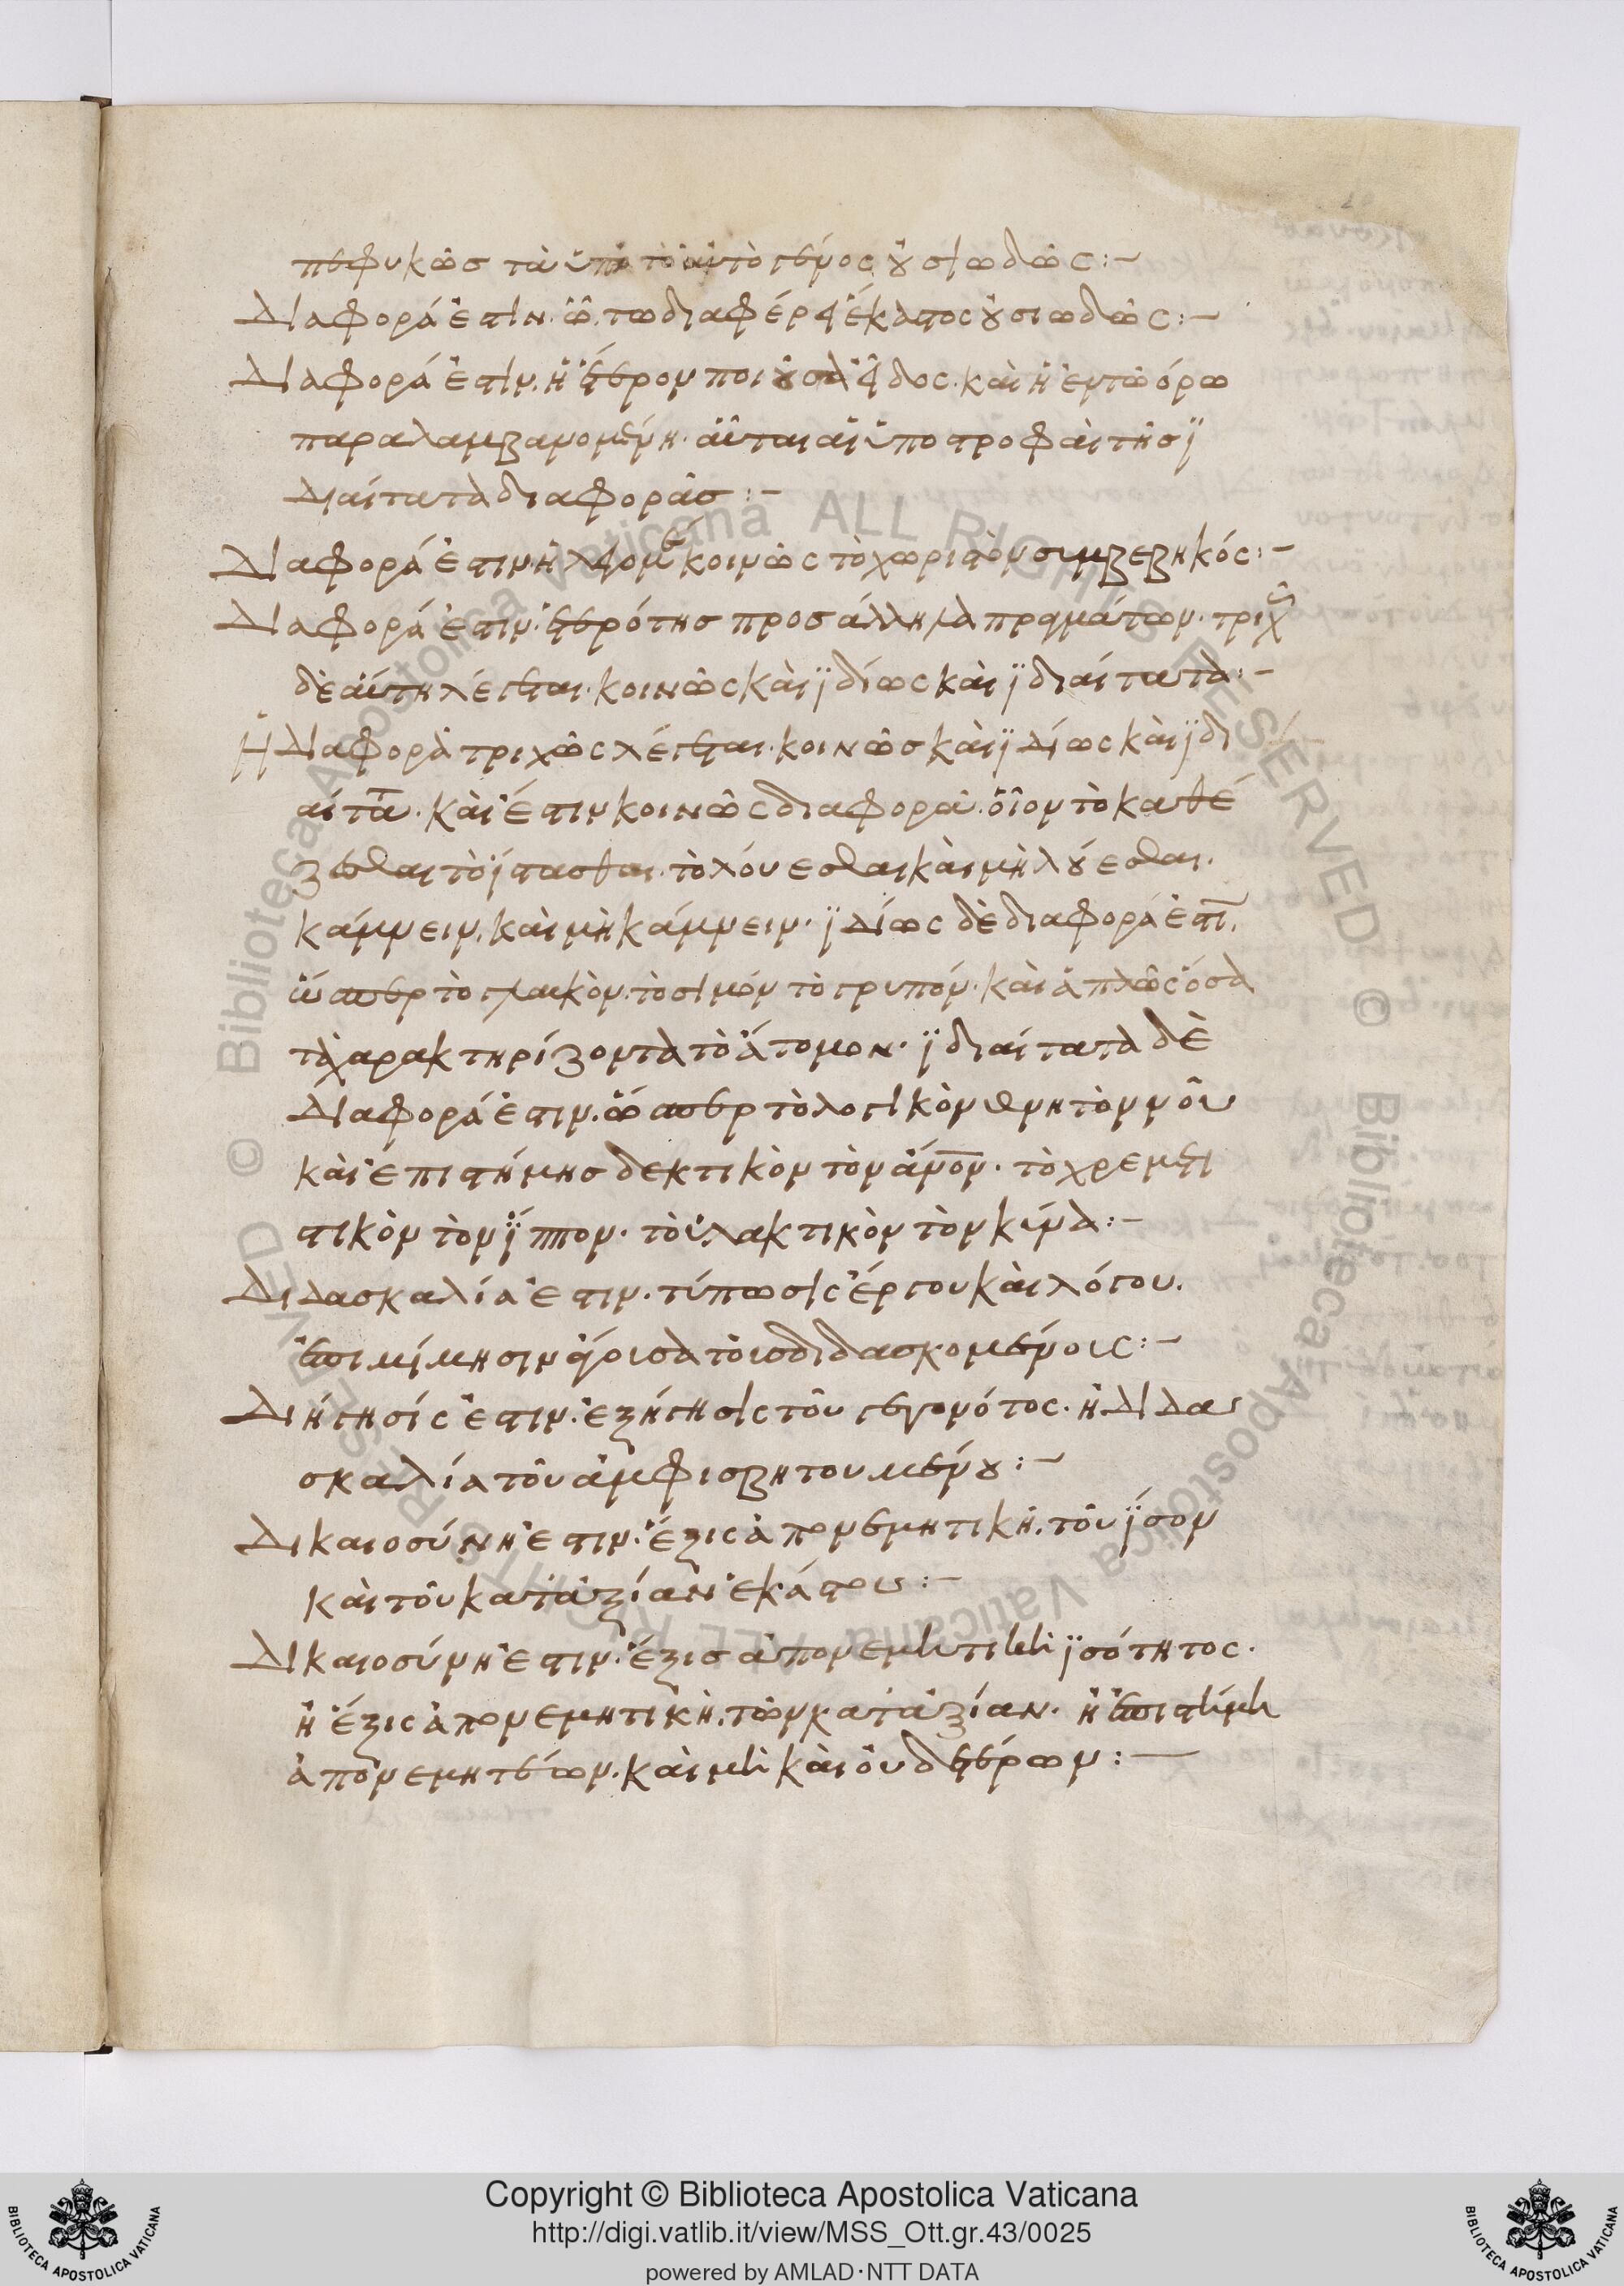 πεφυκὼσ τὰ ὑπὸ τὸ ἀυτὸ γένος οὐσιωδῶς:-
Διαφορά ἐστὶν. ὧ τω διαφέρει ἕκαστος οὐσιωδῶς:-
Διαφορά ἐστίν. ἡ ἕτερον ποιοῦσα εἶδος. καὶ ἡ ἐν τῶ ὅρω
παραλαμβανομένη. αὗται αἱ ὑποστροφαὶ τῆσ ϊ
διαίτατα διαφορᾶσ:-
Διαφορά ἐστιν ἡ λεγομέ κοινῶς τὸ χωριστὸν συμβεβηκός:-
Διαφορά ἐστιν. ἑτερότησ προσ άλληλα πραγμάτων. τριχῶ
δὲ ἁύτη λέγεται. κοινῶς καὶ ϊδίως καὶ ϊδιαίτατα:-
Ἡ διαφορὰ τριχῶς λέγεται. κοινῶσ καὶ ϊδίως καὶ ϊδι
αίτα. καὶ ἔστιν κοινῶς διαφορὰ. οἷον τὸ καθέ
ζεσθαι τὸ ΐστασθαι. τὸ λόυεσθαι καὶ μὴ λούεσθαι.
κάμνειν. καὶ μὴ κάμνειν. ϊδίως δὲ διαφορά ἐστι.
ὥσπερ τὸ γλαυκὸν. τὸ σιμόν τὸ γρυπόν. καὶ ἁπλῶς ὅσα
τὰ χαρακτηρίζοντα τὸ ἄτομον. ϊδιαίτατα δὲ
Διαφορά ἐστιν. ὥσπερ τὸ λογικὸν θνητὸν νοῦ
καὶ ἐπιστήμησ δεκτικὸν τὸν ἄνον. τὸ χρεμετι
στικὸν τὸν ΐππον. τὸ ὑλακτικὸν τὸν κύνα:-
Διδασκαλία ἐστιν. τύπωσις ἔργου καὶ λόγου.
ἐπι μίμησιν φέρουσα τοῖσ διδασκομένοις:-
Διήγησίς ἐστιν. ἐξήγησις τοῦ γεγονότος. ἡ διδα
σκαλία τοῦ ἀμφισβητουμένου:-
Δικαιοσύνη ἐστιν. ἕξις ἀπονεμητικὴ. τοῦ ΐσου
καὶ τοῦ κατ' ἀξίαν ἑκάστου:-
Δικαιοσύνη ἐστιν. ἕξισ ἀπονεμητικὴ ϊσότητος.
ἢ ἕξις ἀπονεμητικὴ. τῶν κατ' ἀξίαν. ἢ ἐπιστήμη
ἀπονεμητέων. καὶ μὴ καὶ οὐδετέρων:-
Copyright © Biblioteca Apostolica Vaticana
http://digi.vatlib.it/view/MSS_Ott.gr.43/0025
powered by AMLAD·NTT DATA